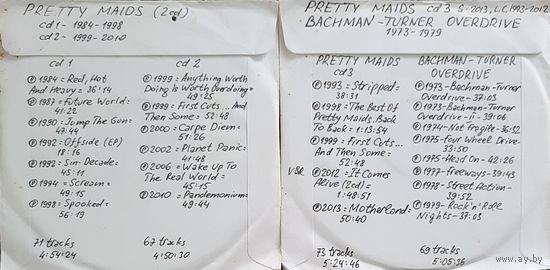 PRETTY MAIDS (2cd)
cd1 - 1984-1998
cd2 - 1999-2010
cd 1
℗ 1984 = Red, Hot
And Heavy = 36:14
℗ 1987 = Future World =
41:22
℗ 1990 = Jump The Gun =
47:44
℗ 1992 = Offside (EP)
18:16
℗ 1992 = Sin-Decade =
45:11
℗ 1994 = Scream =
49:15
℗ 1998 = Spooked =
56:19
71 tracks
4:54:24
cd 2
℗ 1999 = Anything Worth
Doing Is Worth Overdoing =
49:25
℗ 1999 = First Cuts... And
Then Some = 52:48
℗ 2000 = Carpe Diem =
51:26
℗ 2002 = Planet Panic =
41:48
℗ 2006 = Wake Up To
The Real World =
45:15
℗ 2010 = Pandemonium =
49:44
67 tracks
4:50:30
PRETTY MAIDS cd 3 S-2013, L.C, 1993-2012
BACHMAN-TURNER OVERDRIVE
1973-1979
PRETTY MAIDS
cd3
℗ 1993 = Stripped =
38:31
℗ 1998 = The Best Of
Pretty Maids. Back
To Back = 1:13:54
℗ 1999 = First Cuts...
And Then Some =
52:48
VBR ℗ 2012 = It Comes
Alive (2cd) =
1:48:51
℗ 2013 = Motherland =
50:40
73 tracks
5:24:46
BACHMAN-TURNER
OVERDRIVE
℗ 1973-Bachman-Turner
Overdrive - 37:03
℗ 1973-Bachman-Turner
Overdrive - ii - 39:06
℗ 1974-Not Fragile - 36:52
℗ 1975-Four Wheel Drive-
33:50
℗ 1975-Head On - 42:26
℗ 1977-Freeways - 39:43
℗ 1978-Street Action-
39:52
℗ 1979-Rock'n'Roll
Nights - 37:03
69 tracks
5:05:36
www.ay.by